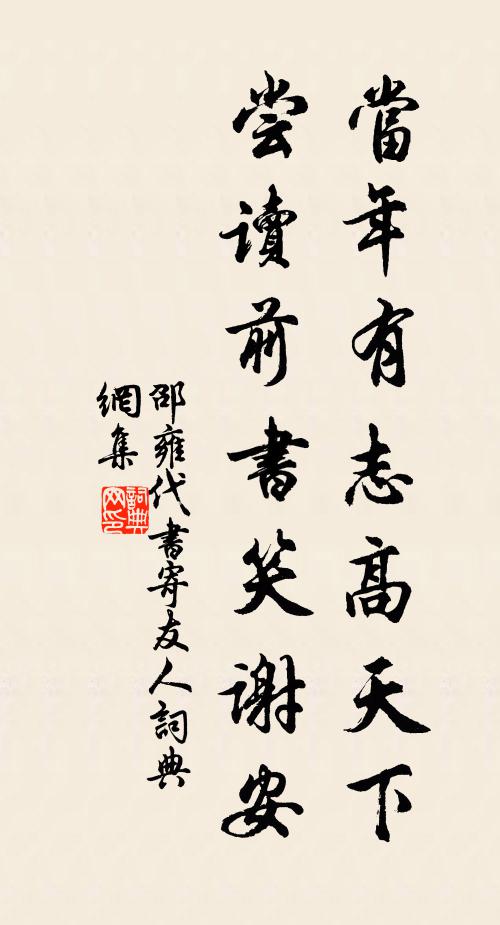 當年有志高天下
尝读前書笑谢安
邵雍代書寄友人詞典
網集
詞典
网印